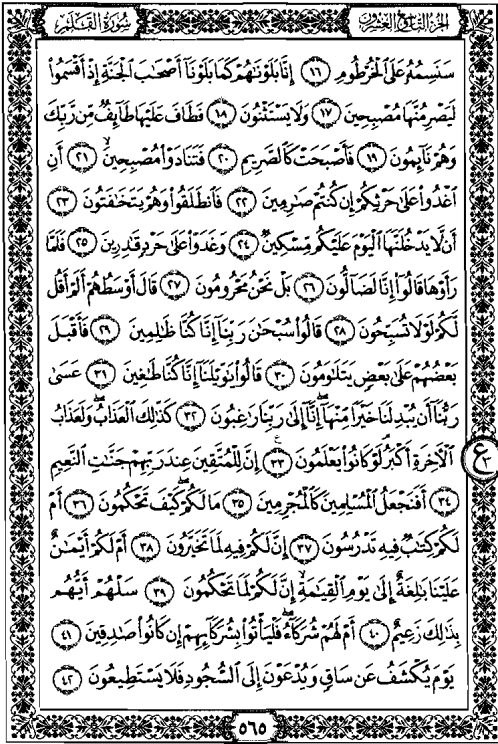 الجزء التاسع والعشرون
سُورَةُ القَلَمِ
سَنَسِمُهُۥ عَلَى ٱلْخُرْطُومِ ١٦ إِنَّا بَلَوْنَٰهُمْ كَمَا بَلَوْنَآ أَصْحَٰبَ ٱلْجَنَّةِ إِذْ أَقْسَمُوا۟
لَيَصْرِمُنَّهَا مُصْبِحِينَ ١٧ وَلَا يَسْتَثْنُونَ ١٨ فَطَافَ عَلَيْهَا طَآئِفٌ مِّن رَّبِّكَ
وَهُمْ نَآئِمُونَ ١٩ فَأَصْبَحَتْ كَٱلصَّرِيمِ ٢٠ فَتَنَادَوْا۟ مُصْبِحِينَ ٢١ أَنِ
ٱغْدُوا۟ عَلَىٰ حَرْثِكُمْ إِن كُنتُمْ صَٰرِمِينَ ٢٢ فَٱنطَلَقُوا۟ وَهُمْ يَتَخَٰفَتُونَ ٢٣
أَن لَّا يَدْخُلَنَّهَا ٱلْيَوْمَ عَلَيْكُم مِّسْكِينٌ ٢٤ وَغَدَوْا۟ عَلَىٰ حَرْدٍ قَٰدِرِينَ ٢٥ فَلَمَّا
رَأَوْهَا قَالُوٓا۟ إِنَّا لَضَآلُّونَ ٢٦ بَلْ نَحْنُ مَحْرُومُونَ ٢٧ قَالَ أَوْسَطُهُمْ أَلَمْ أَقُل
لَّكُمْ لَوْلَا تُسَبِّحُونَ ٢٨ قَالُوا۟ سُبْحَٰنَ رَبِّنَآ إِنَّا كُنَّا ظَٰلِمِينَ ٢٩ فَأَقْبَلَ
بَعْضُهُمْ عَلَىٰ بَعْضٍ يَتَلَٰوَمُونَ ٣٠ قَالُوا۟ يَٰوَيْلَنَآ إِنَّا كُنَّا طَٰغِينَ ٣١ عَسَىٰ
رَبُّنَآ أَن يُبْدِلَنَا خَيْرًا مِّنْهَآ إِنَّآ إِلَىٰ رَبِّنَا رَٰغِبُونَ ٣٢ كَذَٰلِكَ ٱلْعَذَابُ ۖ وَلَعَذَابُ
ٱلْءَاخِرَةِ أَكْبَرُ ۚ لَوْ كَانُوا۟ يَعْلَمُونَ ٣٣ إِنَّ لِلْمُتَّقِينَ عِندَ رَبِّهِمْ جَنَّٰتِ ٱلنَّعِيمِ
ع
٣٤ أَفَنَجْعَلُ ٱلْمُسْلِمِينَ كَٱلْمُجْرِمِينَ ٣٥ مَا لَكُمْ كَيْفَ تَحْكُمُونَ ٣٦ أَمْ
لَكُمْ كِتَٰبٌ فِيهِ تَدْرُسُونَ ٣٧ إِنَّ لَكُمْ فِيهِ لَمَا تَخَيَّرُونَ ٣٨ أَمْ لَكُمْ أَيْمَٰنٌ
عَلَيْنَا بَٰلِغَةٌ إِلَىٰ يَوْمِ ٱلْقِيَٰمَةِ ۙ إِنَّ لَكُمْ لَمَا تَحْكُمُونَ ٣٩ سَلْهُمْ أَيُّهُم
بِذَٰلِكَ زَعِيمٌ ٤٠ أَمْ لَهُمْ شُرَكَآءُ فَلْيَأْتُوا۟ بِشُرَكَآئِهِمْ إِن كَانُوا۟ صَٰدِقِينَ ٤١
يَوْمَ يُكْشَفُ عَن سَاقٍ وَيُدْعَوْنَ إِلَى ٱلسُّجُودِ فَلَا يَسْتَطِيعُونَ ٤٢
٥٦٥